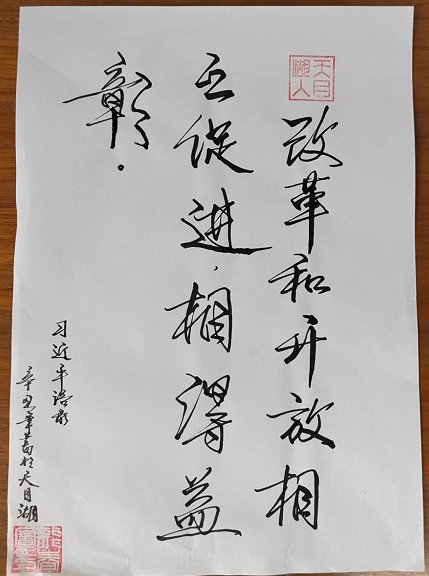 天目湖人
改革和开放相
互促进,相得益
彰.
习近平语录
辛丑年书于天目湖